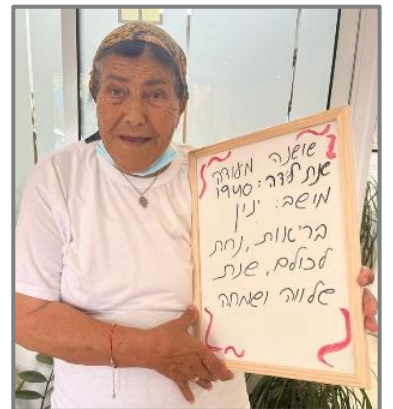 שושנה מעודה
שנת לידה: 1940
מושב: ינון
בריאות, נחת
לכולם, שנת
שלווה ושמחה